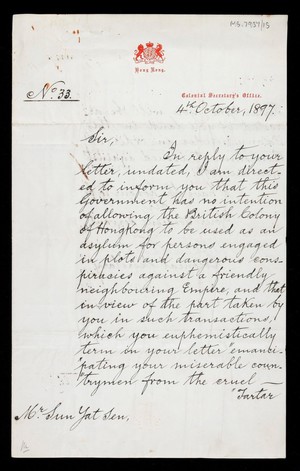 MS.2934/13
Hong Kong.
No. 33.
Colonial Secretary's Office.
4th October, 1897.
Sir,
In reply to your
letter, undated, I am direct-
ed to inform you that this
Government has no intention
of allowing the British Colony
of Hongkong to be used as an
asylum for persons engaged
in plots and dangerous cons-
piracies against a friendly
neighbouring Empire, and that
in view of the part taken by
you in such transactions,
which you euphemistically
term in your letter "emanci-
pating your miserable coun-
"trymen from the cruel —
"Tartar
Mr Sun Yat Sen,